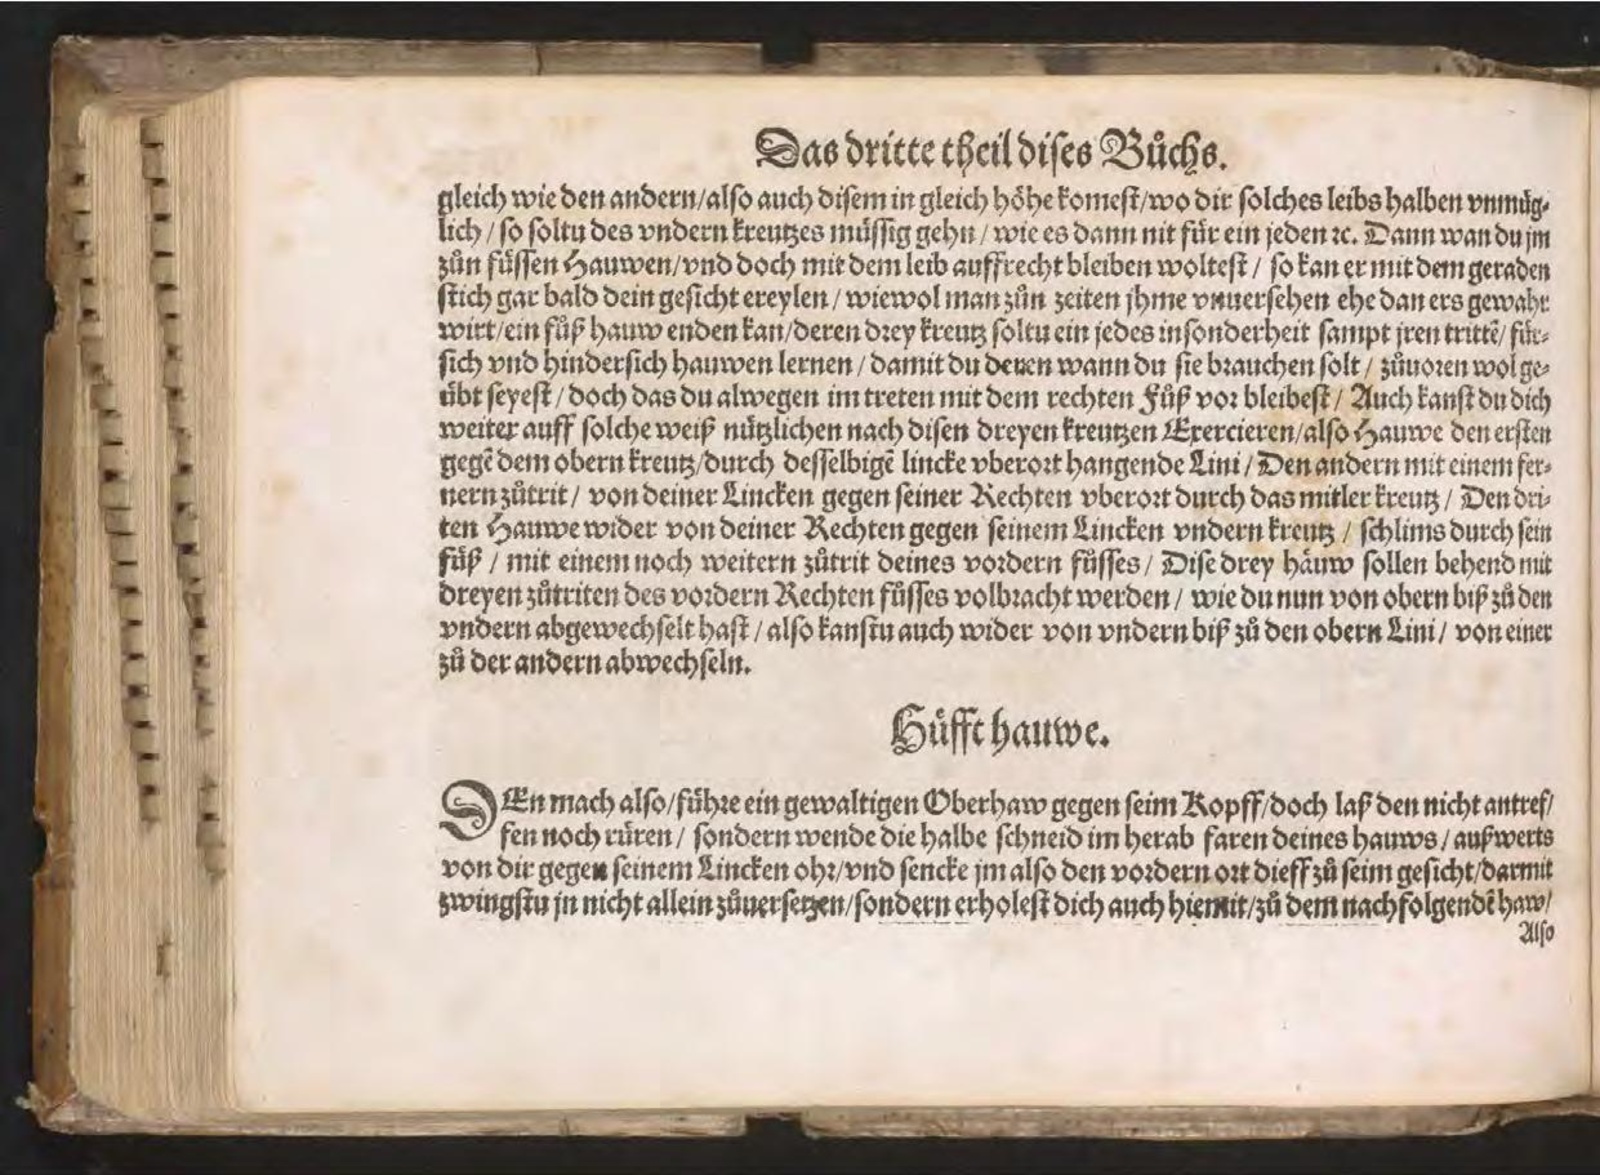 Das dritte theil dises Bůchs.
gleich wie den andern/also auch disem in gleich höhe komest/wo dir solches leibs halben vnmüg-
lich / so soltu des vndern kreutzes müssig gehn / wie es dann nit für ein jeden ꝛc. Dann wan du jm
zůn füssen Hauwen/vnd doch mit dem leib auffrecht bleiben woltest / so kan er mit dem geraden
stich gar bald dein gesicht ereylen / wiewol man zůn zeiten jhme vnuersehen ehe dan ers gewahr
wirt/ein fůß hauw enden kan/deren drey kreutz soltu ein jedes insonderheit sampt jren trittē/ für-
sich vnd hindersich hauwen lernen / damit du deren wann du sie brauchen solt / zůuoren wol ge-
übt seyest / doch das du alwegen im treten mit dem rechten Fůß vor bleibest / Auch kanst du dich
weiter auff solche weiß nützlichen nach disen dreyen kreutzen Exercieren/also Hauwe den ersten
gegē dem obern kreutz/durch desselbigē lincke vberort hangende Lini / Den andern mit einem fer-
nern zůtrit / von deiner Lincken gegen seiner Rechten vberort durch das mitler kreutz / Den dri-
ten Hauwe wider von deiner Rechten gegen seinem Lincken vndern kreutz / schlims durch sein
fůß / mit einem noch weitern zůtrit deines vordern fůsses / Dise drey häuw sollen behend mit
dreyen zůtriten des vordern Rechten fůsses volbracht werden / wie du nun von obern biß zů den
vndern abgewechselt hast / also kanstu auch wider von vndern biß zů den obern Lini / von einer
zů der andern abwechseln.
Hüfft hauwe.
DEn mach also/führe ein gewaltigen Oberhaw gegen seim Kopff/doch laß den nicht antref/
fen noch rüren / sondern wende die halbe schneid im herab faren deines hauws / außwerts
von dir gegen seinem Lincken ohr/vnd sencke jm also den vordern ort dieff zů seim gesicht/darmit
zwingstu jn nicht allein zůuersetzen/sondern erholest dich auch hiemit/zů dem nachfolgendē haw/
Also